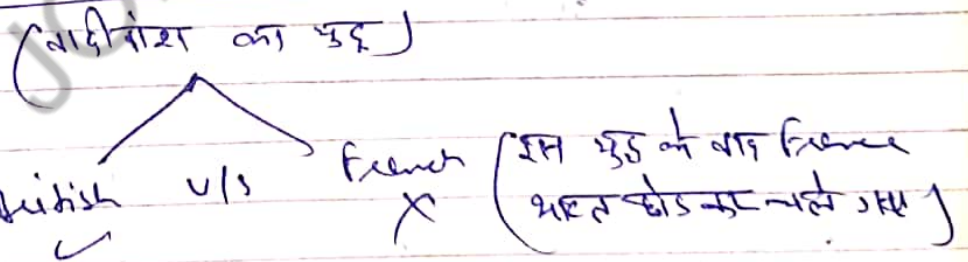 (वादीवांश का युद्ध)
British v/s French (इस युद्ध के बाद France
✓ × भारत छोडकर चले गए)